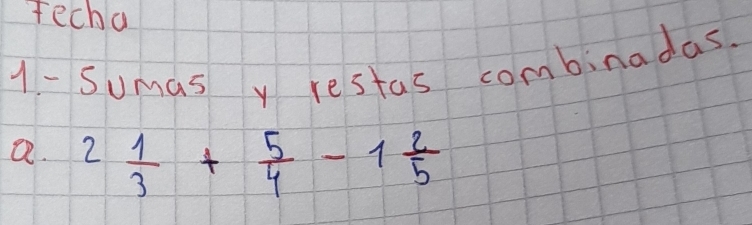 Fecha
1.- Sumas y restas combinadas.
a. 2 1/3 + 5/4 - 1 2/5